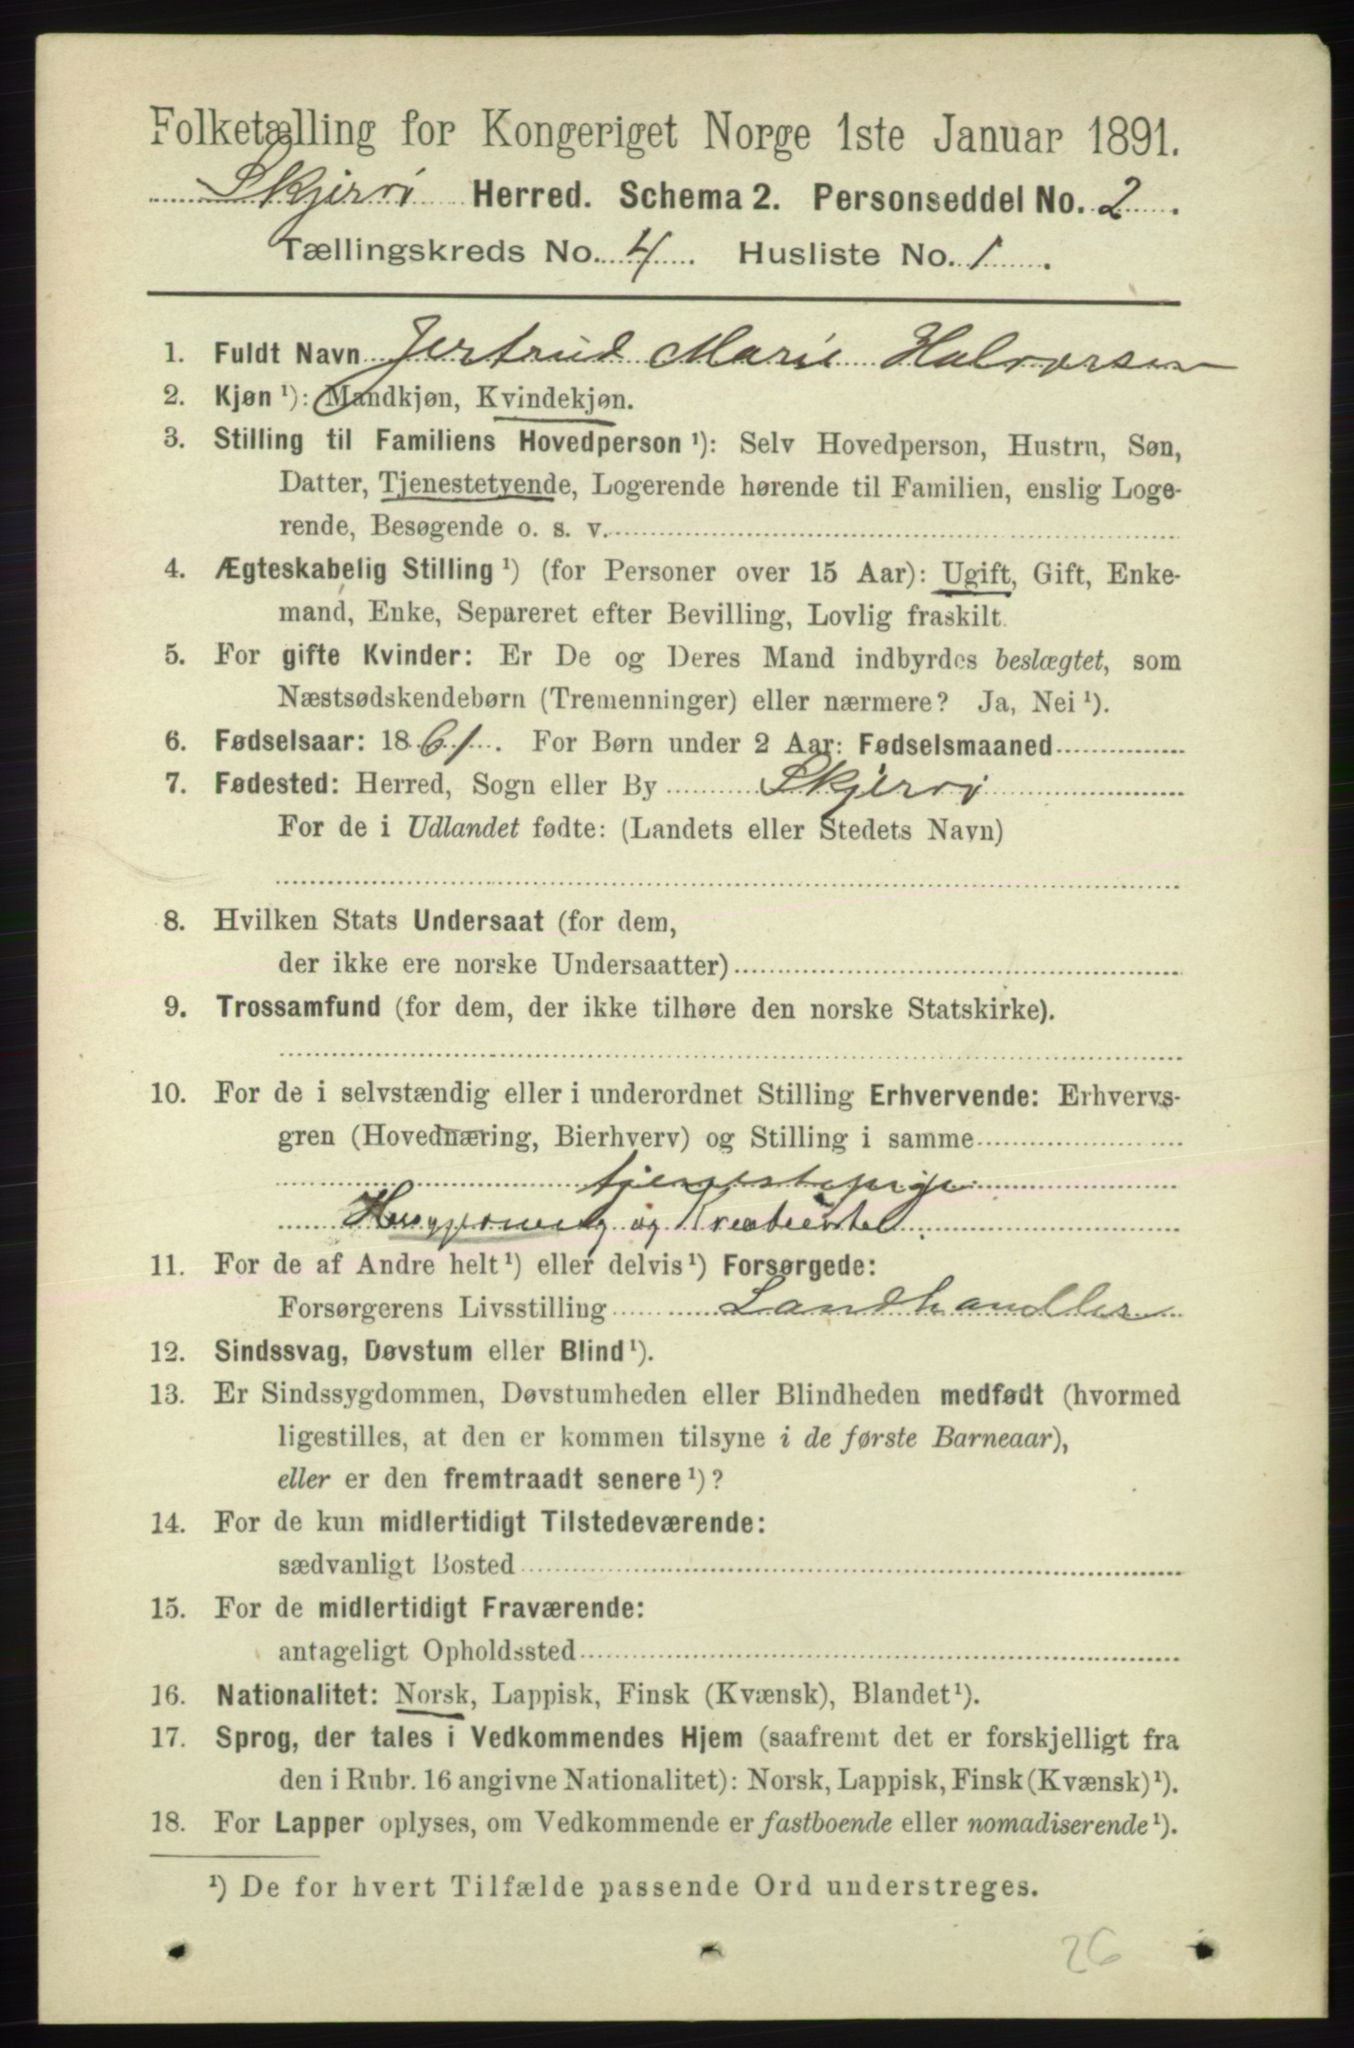 Folketælling for Kongeriget Norge 1ste Januar 1891.
Skjervö Herred. Schema 2. Personseddel No. 2.
Tællingskreds No. 4. Husliste No. 1.
1. Fuldt Navn Jertrud Marie Halvorsen
2. Kjøn ¹): Mandkjøn, Kvindekjøn.
3. Stilling til Familiens Hovedperson ¹): Selv Hovedperson, Hustru, Søn,
Datter, Tjenestetyende, Logerende hørende til Familien, enslig Loge-
rende, Besøgende o. s. v.
4. Ægteskabelig Stilling ¹) (for Personer over 15 Aar): Ugift, Gift, Enke-
mand, Enke, Separeret efter Bevilling, Lovlig fraskilt.
5. For gifte Kvinder: Er De og Deres Mand indbyrdes beslægtet, som
Næstsødskendebørn (Tremenninger) eller nærmere? Ja, Nei ¹).
6. Fødselsaar: 1861. For Børn under 2 Aar: Fødselsmaaned
7. Fødested: Herred, Sogn eller By Skjervö
For de i Udlandet fødte: (Landets eller Stedets Navn)
8. Hvilken Stats Undersaat (for dem,
der ikke ere norske Undersaatter)
9. Trossamfund (for dem, der ikke tilhøre den norske Statskirke).
10. For de i selvstændig eller i underordnet Stilling Erhvervende: Erhvervs-
gren (Hovednæring, Bierhverv) og Stilling i samme
tjenestepige
Husgjerning og
11. For de af Andre helt ¹) eller delvis ¹) Forsørgede:
Forsørgerens Livsstilling Landhandler
12. Sindssvag, Døvstum eller Blind ¹).
13. Er Sindssygdommen, Døvstumheden eller Blindheden medfødt (hvormed
ligestilles, at den er kommen tilsyne i de første Barneaar),
eller er den fremtraadt senere ¹)?
14. For de kun midlertidigt Tilstedeværende:
sædvanligt Bosted
15. For de midlertidigt Fraværende:
antageligt Opholdssted
16. Nationalitet: Norsk, Lappisk, Finsk (Kvænsk), Blandet ¹).
17. Sprog, der tales i Vedkommendes Hjem (saafremt det er forskjelligt fra
den i Rubr. 16 angivne Nationalitet): Norsk, Lappisk, Finsk (Kvænsk) ¹).
18. For Lapper oplyses, om Vedkommende er fastboende eller nomadiserende ¹).
¹) De for hvert Tilfælde passende Ord understreges.
26